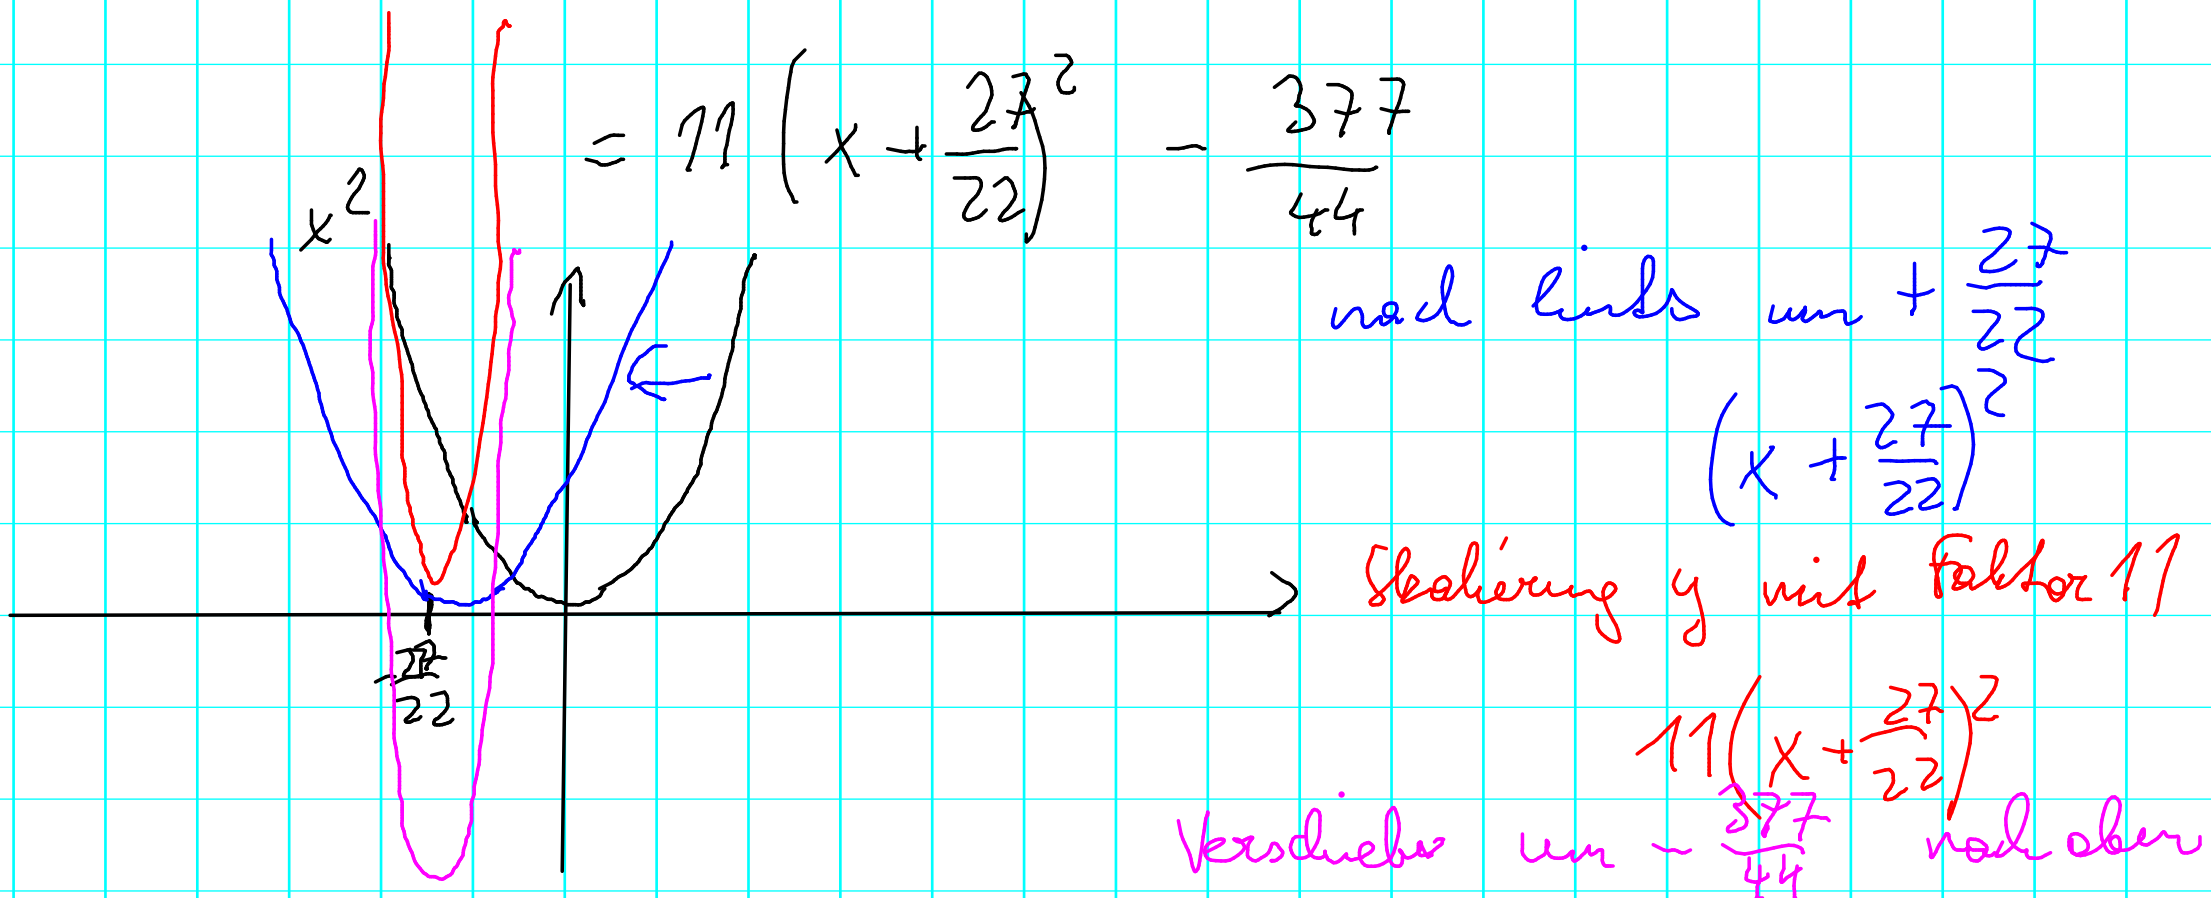 = 11 (x + 27/22)² - 377/44
x²
nach links um + 27/22
(x + 27/22)²
Skalierung y mit Faktor 11
- 27/22
11 (x + 27/22)²
Verschieben um - 377/44 nach oben